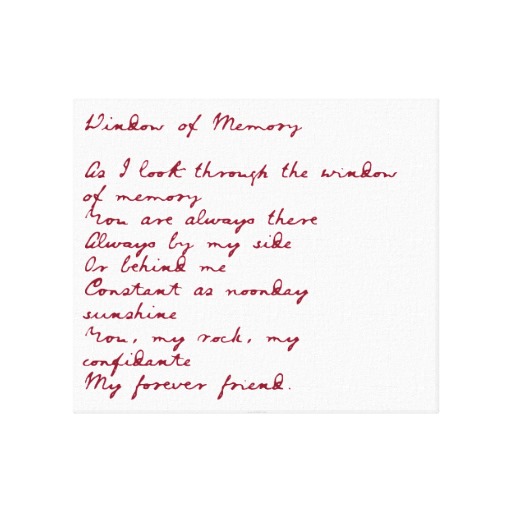 Window of Memory
As I look through the window
of memory
You are always there
Always by my side
Or behind me
Constant as noonday
sunshine
You, my rock, my
confidante
My forever friend.